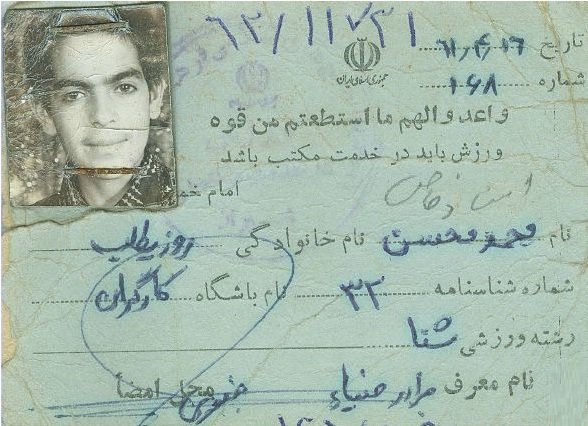 ۶۲/۱۱/۲۱
تاریخ ۶۱/۴/۱۶
جمهوری اسلامی ایران
شماره ۱۶۸
واعد والهم ما استطعتم من قوه
ورزش باید در خدمت مکتب باشد
امام خم
نام محمد محسن نام خانوادگی روزیطلب
شماره شناسنامه ۳۲ نام باشگاه کارگران
رشته ورزشی شنا
نام معرف برادر ضیاء محل امضأ